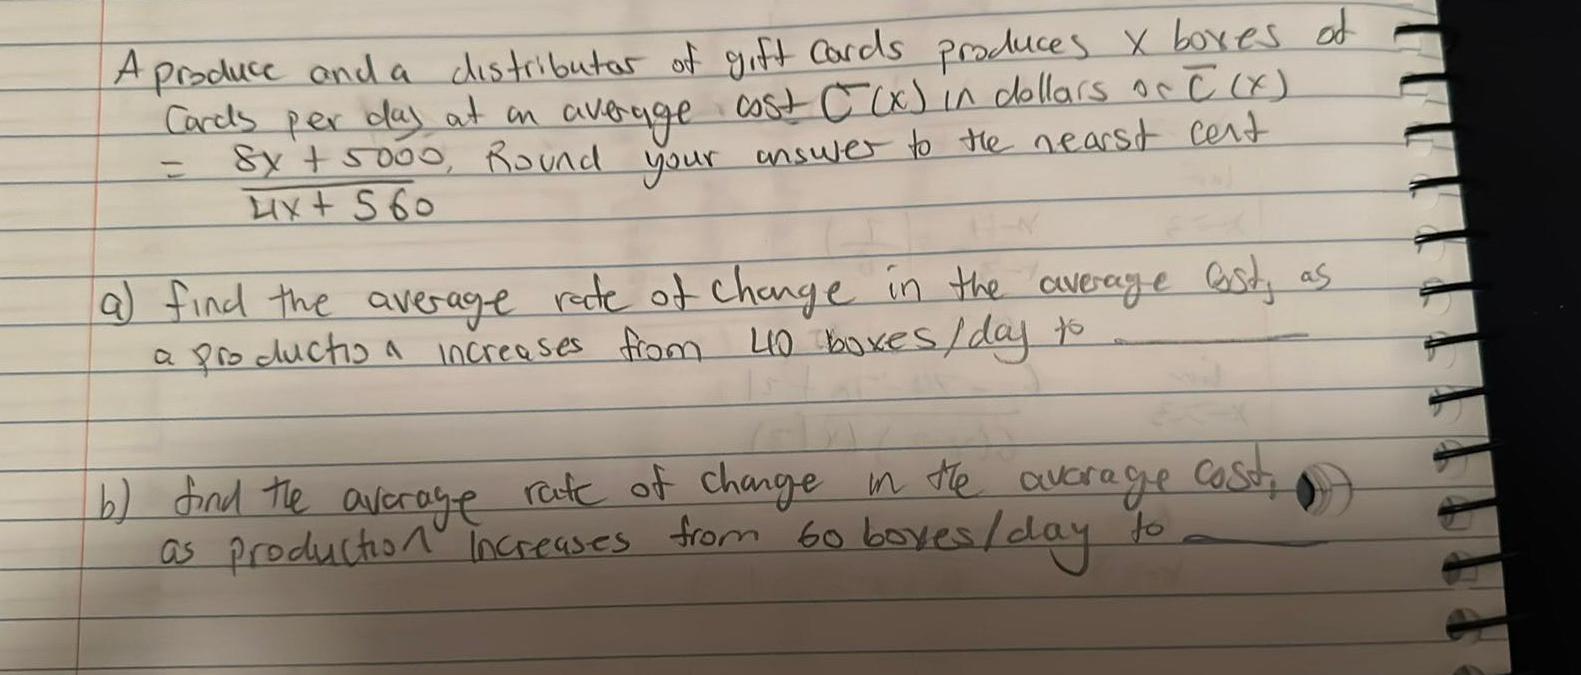 A produce and a distributor of gift Cards produces x boxes of
Cards per day at an average cost C̅(x) in dollars of C̅(x)
= 8x + 5000. Round your answer to the nearst cent
4x + 560
a) find the average rate of change in the average Cost, as
a production increases from 40 boxes/day to ______
b) find the average rate of change in the average Cost,
as production Increases from 60 boxes/day to ______